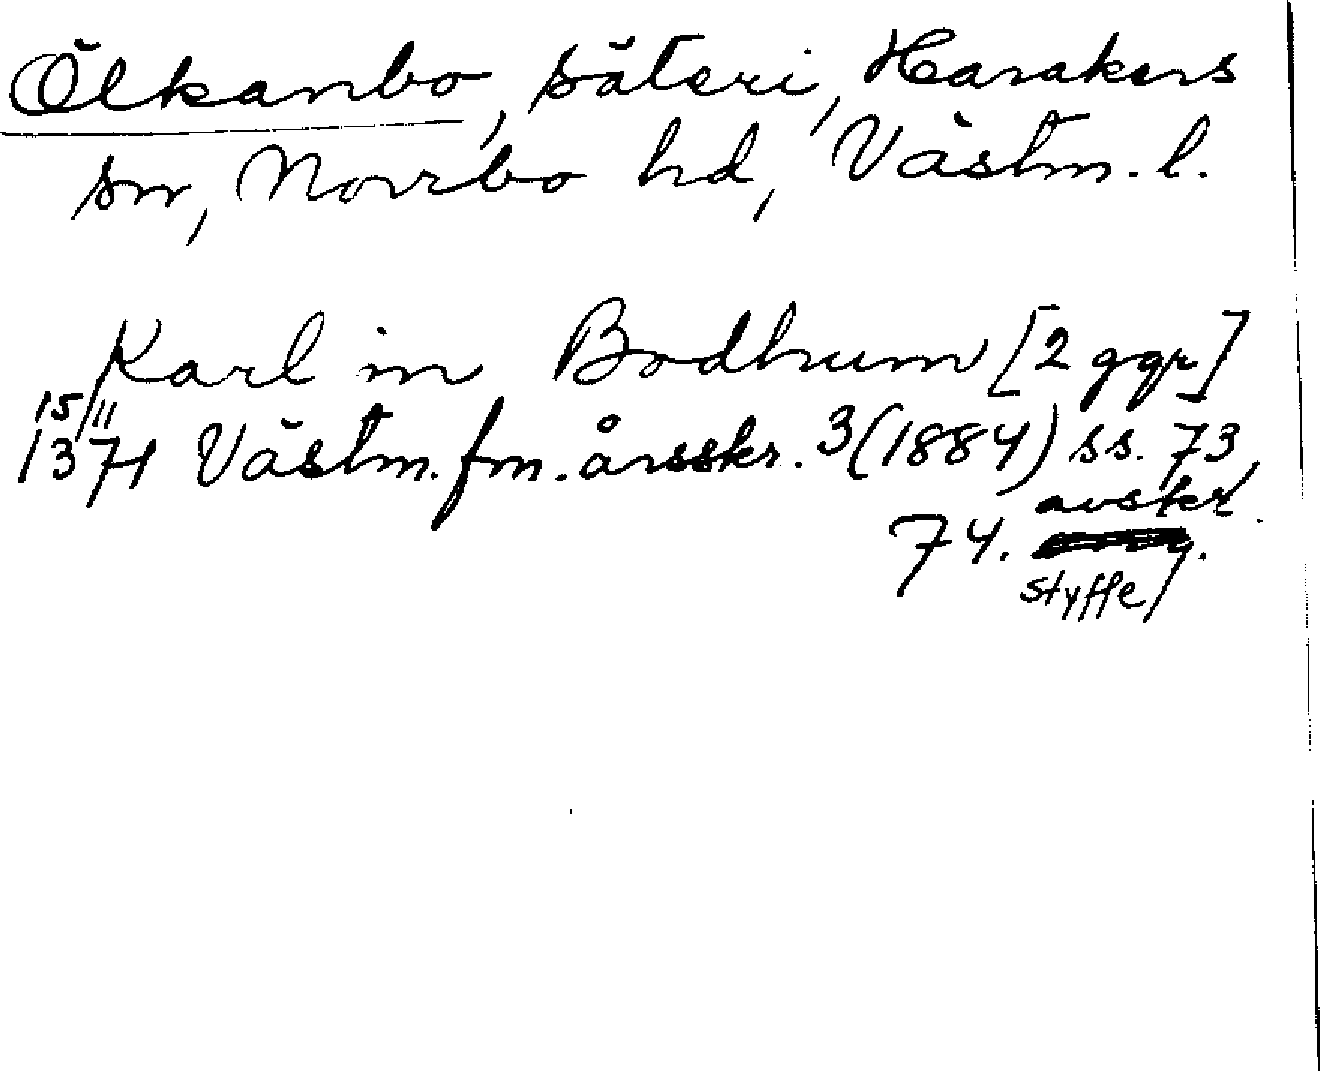 Ölkanbo, säteri, Harakers
sn, Norrbo hd, Västm. l.
Karl in Bodhum [2 ggr]
15/11
1371 Västm. fm. årsskr. 3 (1884) ss. 73,
74. avskr.
Styffe